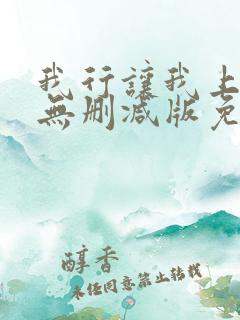 我行讓我上
無刪减版免
醇香
未经同意禁止转载